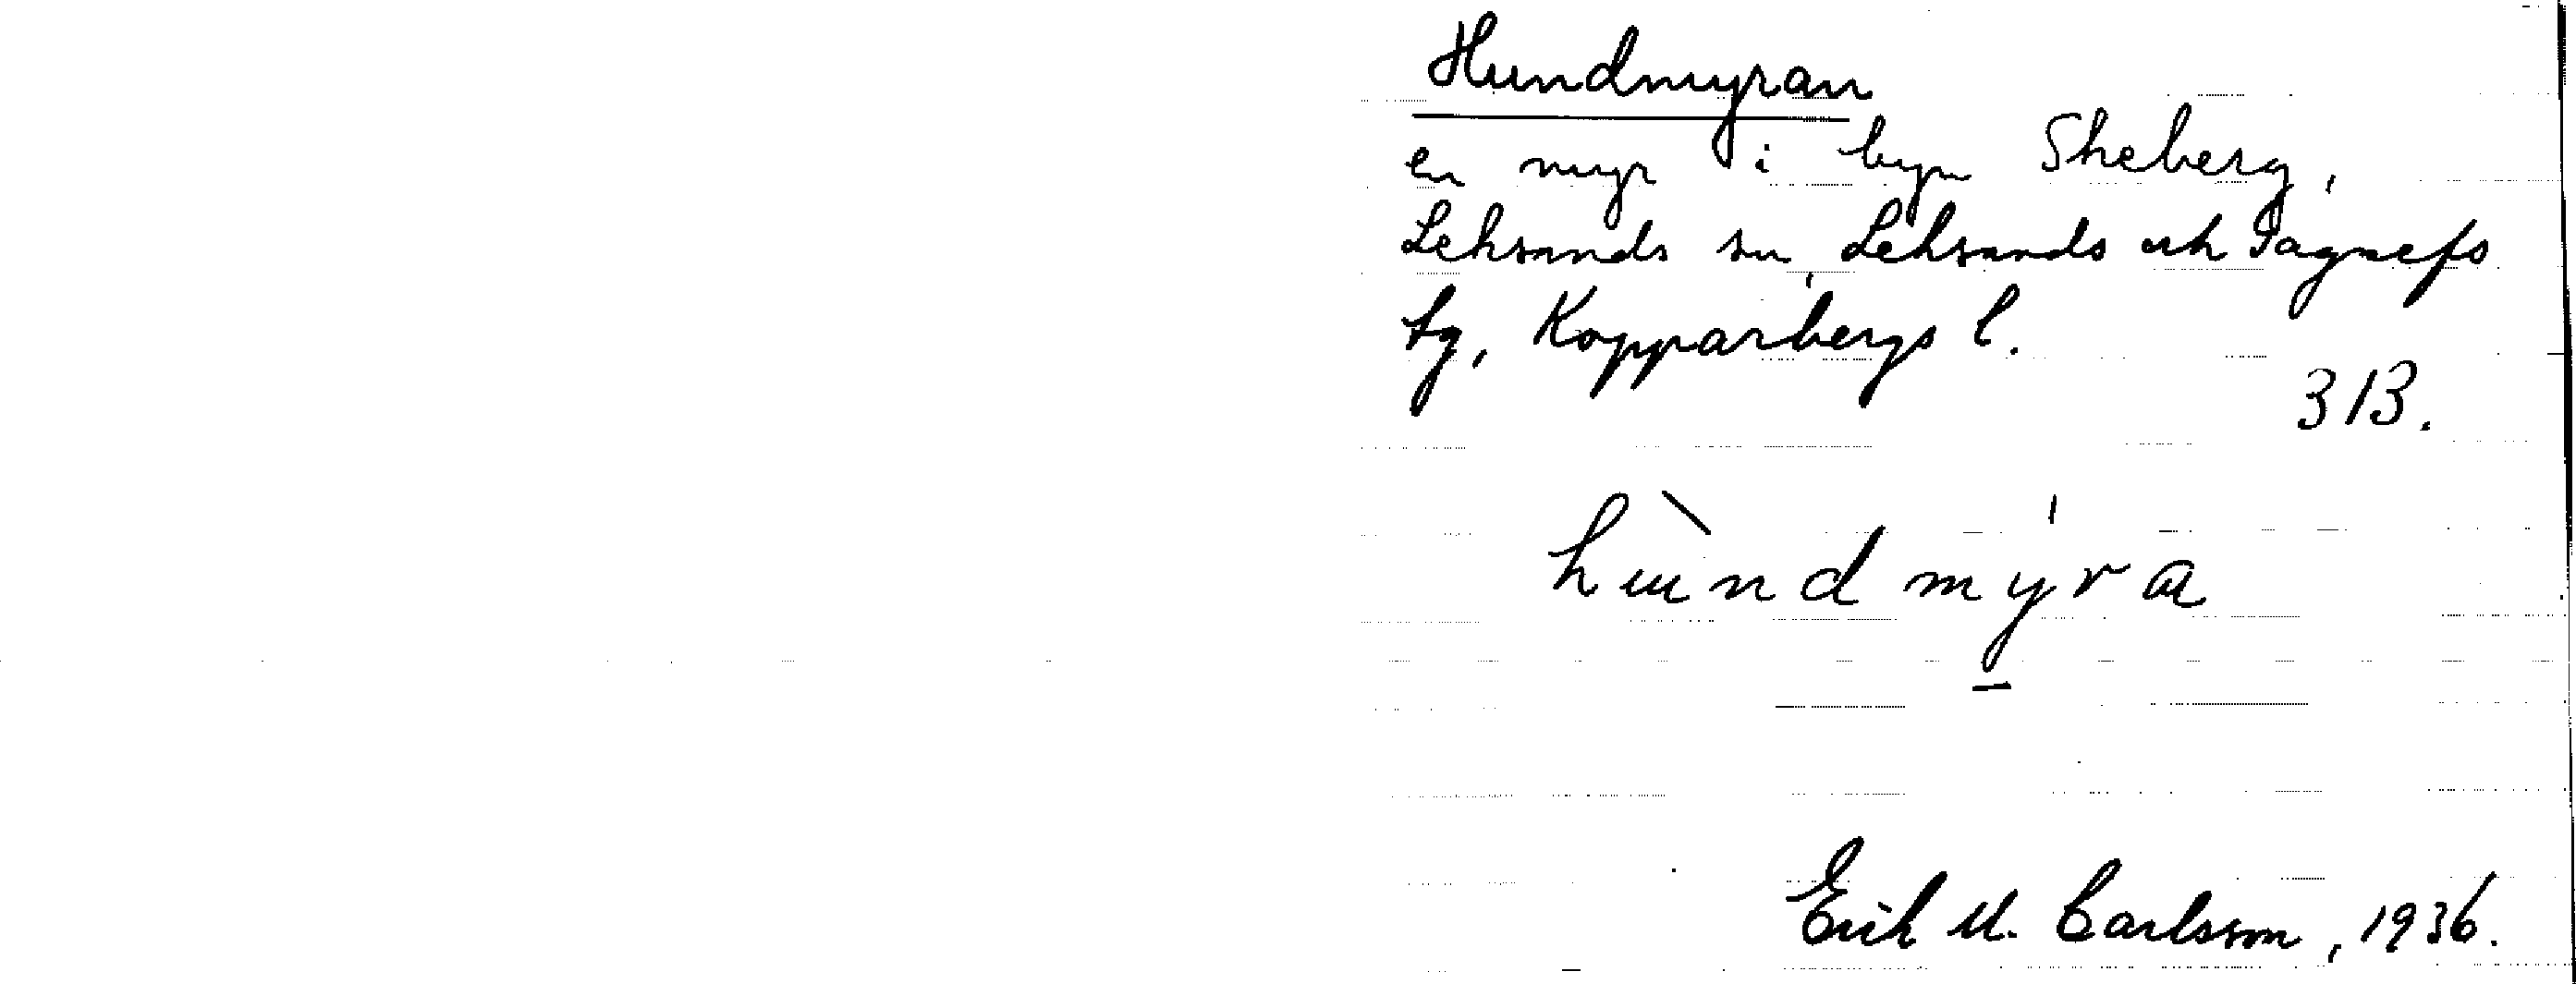 Hundmyran
en myr i byn Skeberg,
Leksands sn, Leksands och Gagnefs
tg, Kopparbergs l.
313.
hùndmyra
Erik M. Carlsson, 1936.